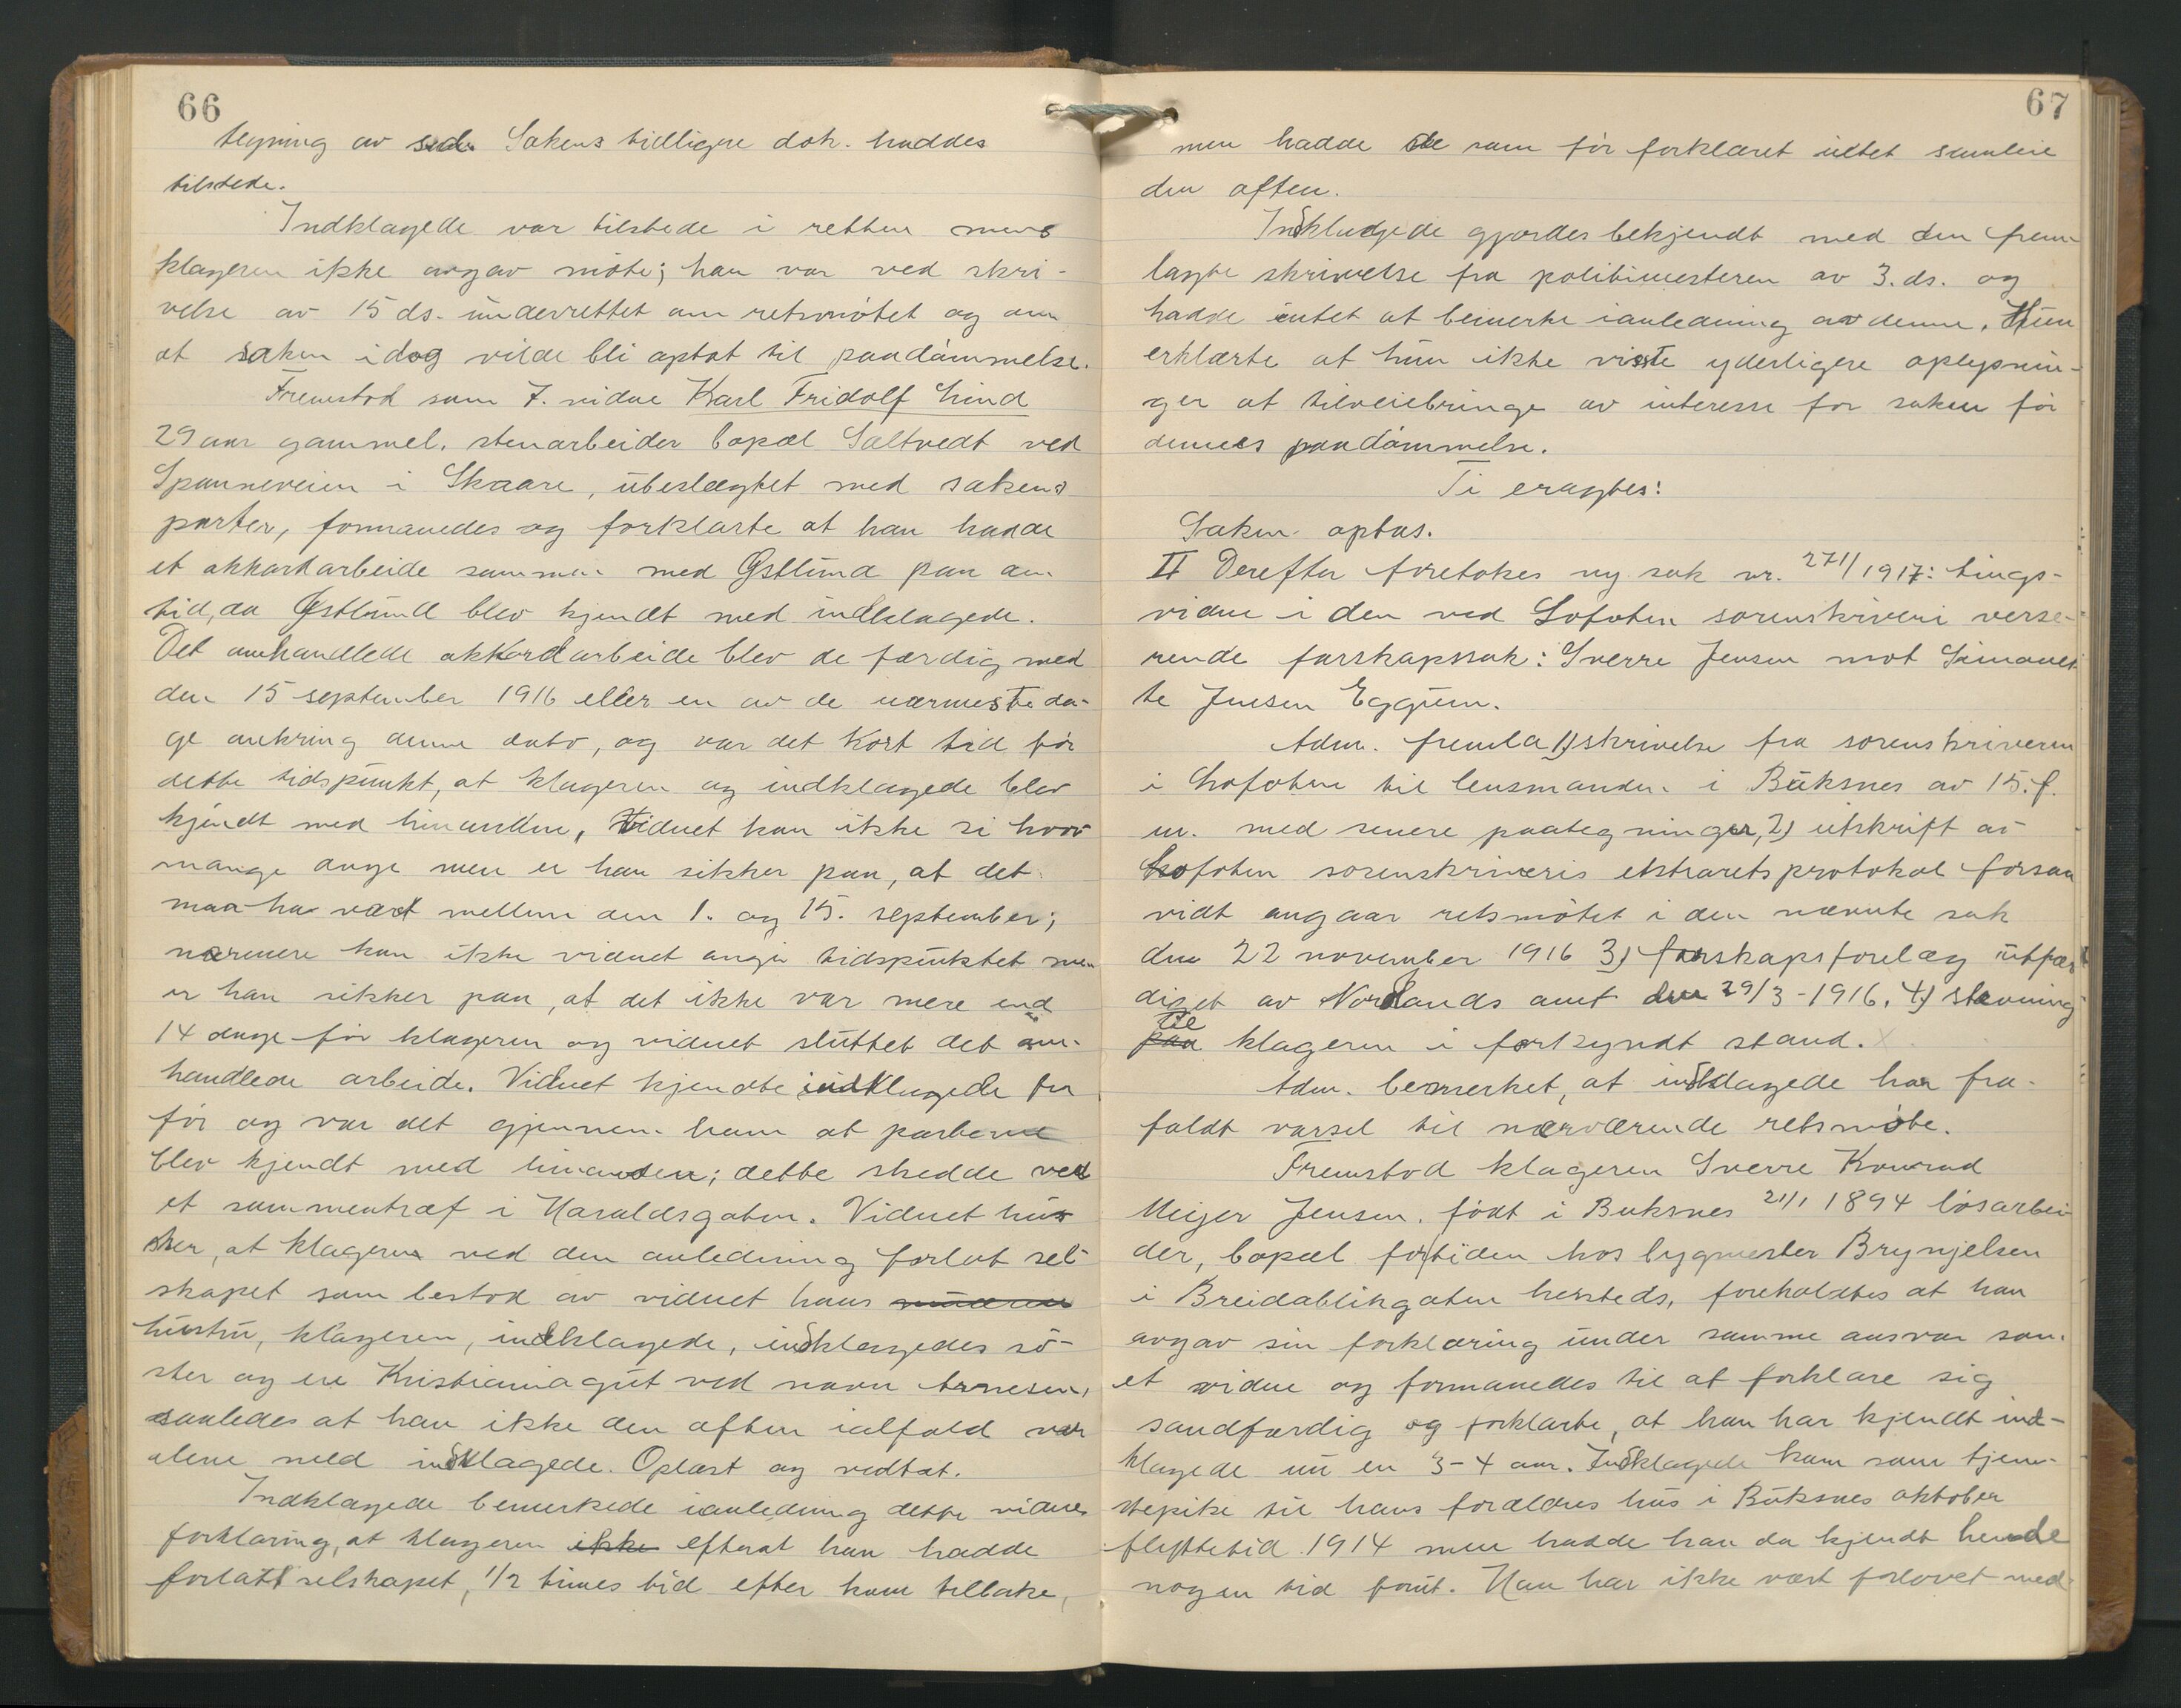 66
tegning av Sakens tidligere dok. haddes
tilstede.
Indklagede var tilstede i retten mens
klageren ikke avgav møte; han var ved skri-
velse av 15 ds. underrettet om retsmøtet og om
at saken idag vilde bli optat til paadømmelse.
Fremstod som 7. vidne Karl Fridolf Lind
29 aar gammel, stenarbeider bopæl Saltvedt ved
Spanneveien i Skaare, ubeslegtet med sakens
parter, formanedes og forklarte at han hadde
et akkordarbeide sammen med Østlund paa den
tid, da Østlund blev kjendt med indklagede.
Det omhandlede akkordarbeide blev de færdig med
den 15 september 1916 eller en av de nærmeste da-
ge omkring denne dato, og var det kort tid før
dette tidspunkt, at klageren og indklagede blev
kjendt med hinanden, Vidnet kan ikke si hvor
mange dage men er han sikker paa, at det
maa ha vært mellem den 1. og 15. september;
nærmere kan ikke vidnet angi tidspunktet men
er han sikker paa, at det ikke var mere end
14 dage før klageren og vidnet sluttet det om-
handlede arbeide. Vidnet kjendte indklagede fra
før og var det gjennem ham at parterne
blev kjendt med hinanden; dette skedde ved
et sammentræf i Haraldsgaten. Vidnet hus-
ker, at klageren ved den anledning forlot sel-
skapet som bestod av vidnet hans
hustru, klageren, indklagede, indklagedes sø-
ster og en Kristianiagut ved navn Arnesen,
saaledes at han ikke den aften ialfald var
alene med indklagede. Oplæst og vedtat.
Indklagede bemerkede ianledning dette vidnes
forklaring, at klageren ikke efterat han hadde
forlatt selskapet, 1/2 times tid efter kom tilbake,
67
men hadde de som før forklaret intet samleie
den aften.
Indklagede gjordes bekjendt med den frem-
lagte skrivelse fra politimesteren av 3. ds. og
hadde intet at bemerke ianledning av denne. Hun
erklærte at hun ikke visste yderligere oplysnin-
ger at tilveiebringe av interesse for saken før
dennes paadømmelse.
Ti eragtes:
Saken optas.
II Derefter foretokes ny sak nr. 271/1917: tings-
vidne i den ved Lofoten sorenskriveri verse-
rende farskapssak: Sverre Jensen mot Simonet-
te Jensen Eggum.
Adm. fremla 1) skrivelse fra sorenskriveren
i Lofoten til lensmanden i Buksnes av 15. f.
m. med senere paategninger, 2) utskrift av
Lofoten sorenskriveris ekstraretsprotokol forsaa
vidt angaar retsmøtet i den nævnte sak
den 22 november 1916 3) farskapsforelæg utfær
diget av Nordlands amt den 29/3-1916, 4) stevning
paa til klageren i forkyndt stand.
Adm. bemerket, at indklagede har fra-
faldt varsel til nærværende retsmøte.
Fremstod klageren Sverre Konrad
Meijer Jensen, født i Buksnes 21/1 1894 løsarbei
der, bopæl fortiden hos bygmester Brynjelsen
i Breidablikgaten hersteds, foreholdtes at han
avgav sin forklæring under samme ansvar som
et vidne og formanedes til at forklare sig
sandfærdig og forklarte, at han har kjendt ind-
klagede nu en 3-4 aar. Indklagede kom som tjene-
stepike til hans forældres hus i Buksnes oktober
flyttetid 1914 men hadde han da kjendt hende
nogen tid forut. Han har ikke vært forlovet med